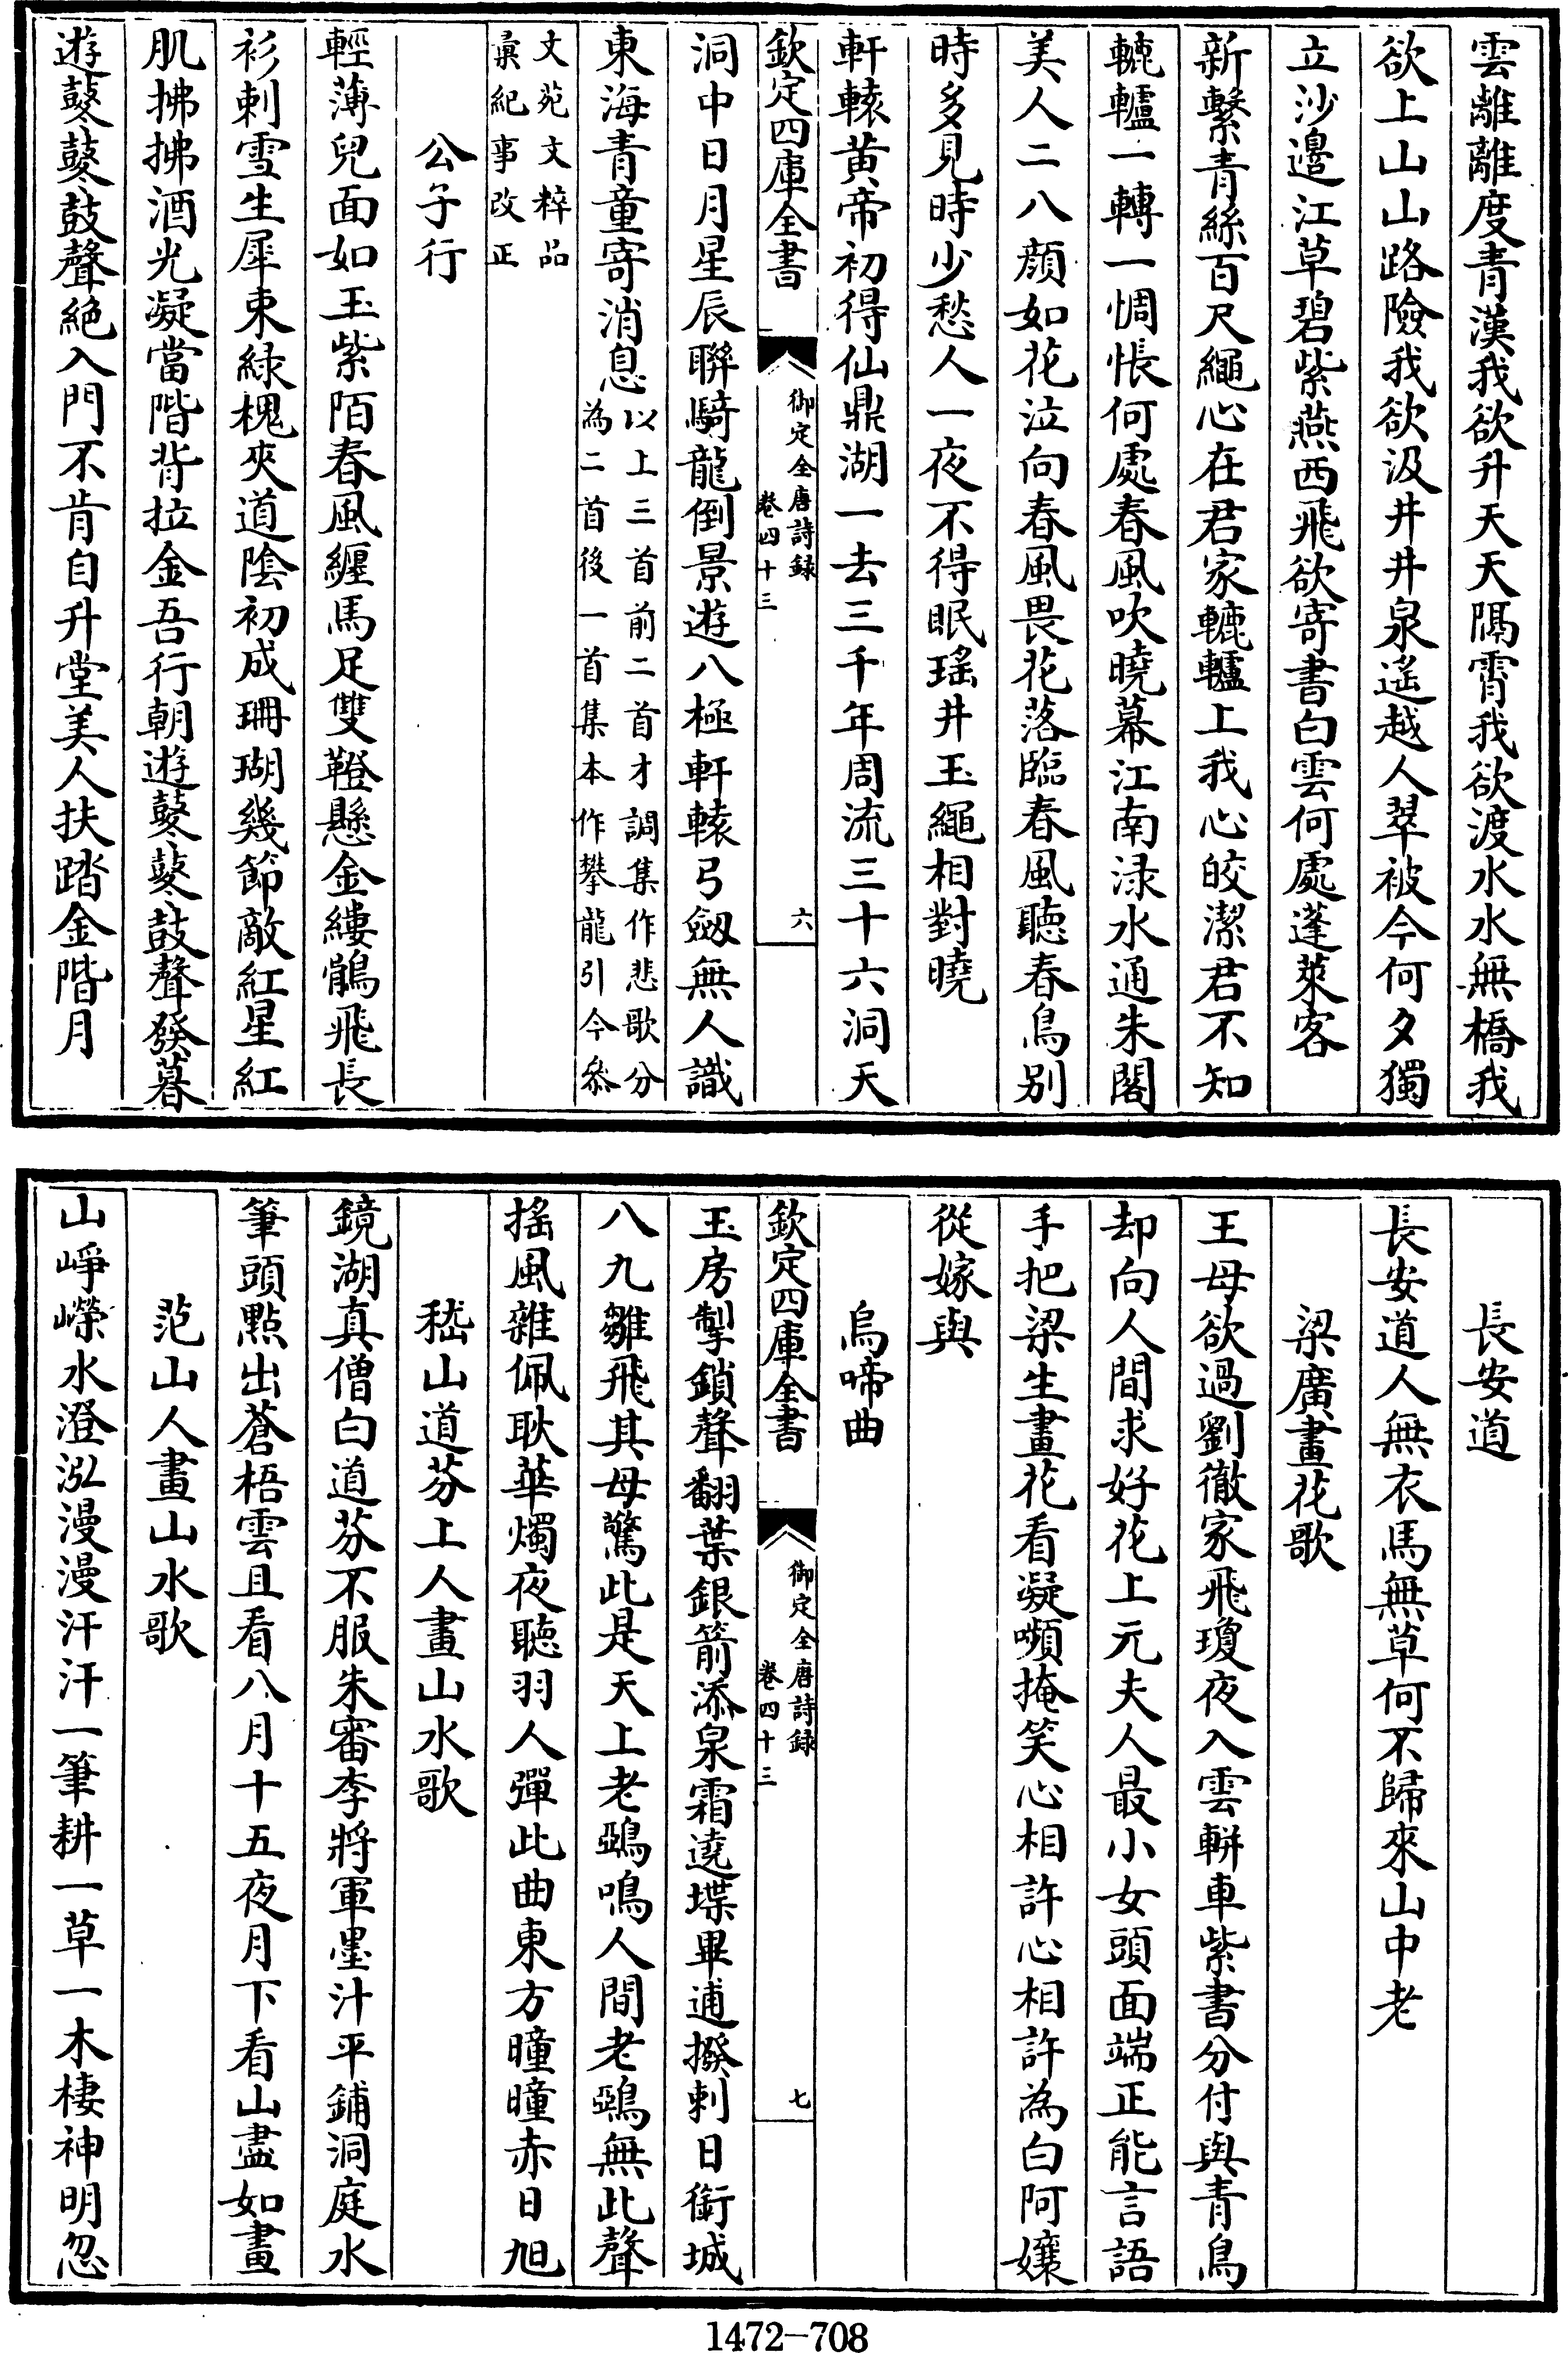 雲離離度青漢我欲升天天隔霄我欲渡水水無橋我
欲上山山路險我欲汲井井泉遙越人翠被今何夕獨
立沙邊江草碧紫燕西飛欲寄書白雲何處蓬萊客
新繫青絲百尺繩心在君家轆轤上我心皎潔君不知
轆轤一轉一惆悵何處春風吹曉幕江南淥水通朱閣
美人二八顏如花泣向春風畏花落臨春風聽春鳥别
時多見時少愁人一夜不得眠瑤井玉繩相對曉
軒轅黄帝初得仙鼎湖一去三千年周流三十六洞天
欽定四庫全書
御定全唐詩録
卷四十三
六
洞中日月星辰聯騎龍倒景遊八極軒轅弓劔無人識
東海青童寄消息
以上三首前二首才調集作悲歌分
為二首後一首集本作攀龍引今叅
文苑文粹品
彚紀事改正
公子行
輕薄兒面如玉紫陌春風纏馬足雙鞾懸金縷鶻飛長
衫刺雪生犀束緑槐夾道陰初成珊瑚幾節敵紅星紅
肌拂拂酒光凝當階背拉金吾行朝遊鼕鼕鼓聲發暮
遊鼕鼕鼓聲絶入門不肯自升堂美人扶踏金階月
長安道
長安道人無衣馬無草何不歸來山中老
梁廣畫花歌
王母欲過劉徹家飛瓊夜入雲軿車紫書分付與青鳥
却向人間求好花上元夫人最小女頭面端正能言語
手把梁生畫花看凝嚬掩笑心相許心相許為白阿孃
從嫁與
烏啼曲
欽定四庫全書
御定全唐詩録
卷四十三
七
玉房掣鎖聲翻葉銀箭添泉霜遶堞畢逋撥剌日銜城
八九雛飛其母驚此是天上老鵶鳴人間老鵶無此聲
揺風雜佩耿華燭夜聽羽人彈此曲東方曈曈赤日旭
嵇山道芬上人畫山水歌
鏡湖真僧白道芬不服朱審李將軍墨汁平鋪洞庭水
筆頭點出蒼梧雲且看八月十五夜月下看山盡如畫
范山人畫山水歌
山崢嶸水澄泓漫漫汗汗一筆耕一草一木棲神明忽
1472-708